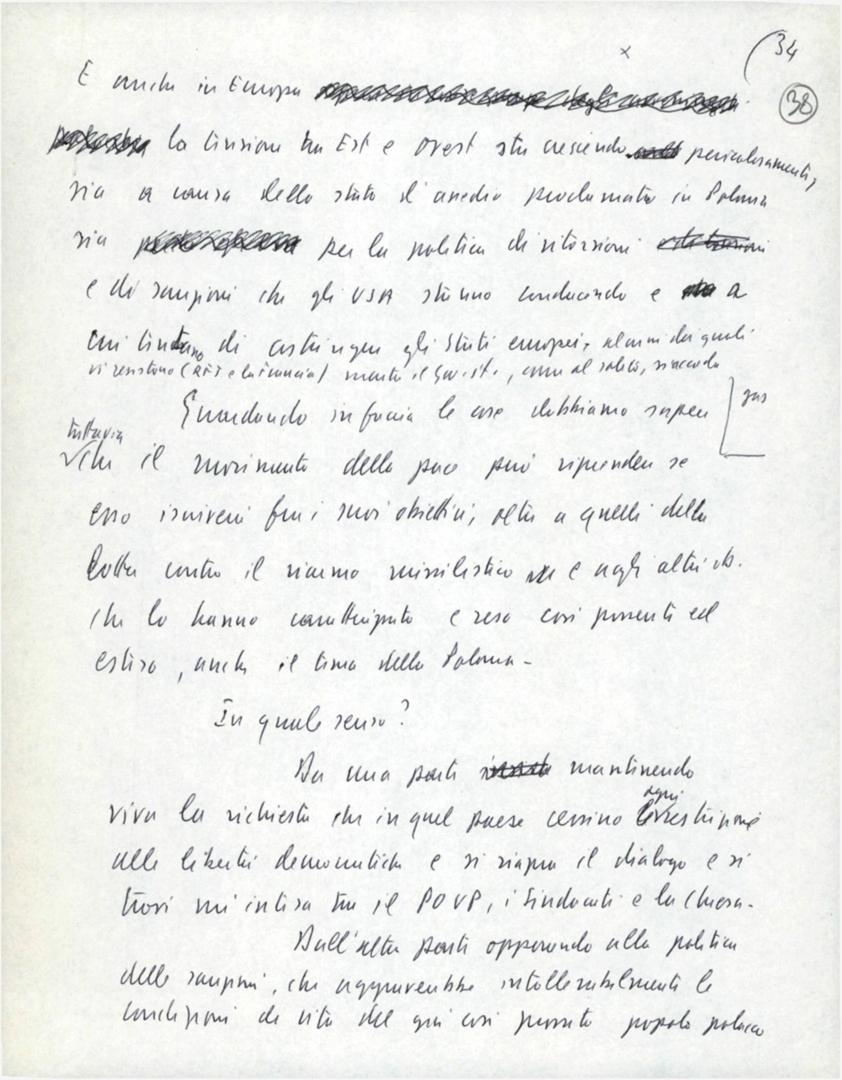 34
38
x
E anche in Europa
la tensione tra Est e Ovest sta crescendo pericolosamente,
sia a causa dello stato d'assedio proclamato in Polonia
sia per la politica di ritorsioni
e di sanzioni che gli USA stanno conducendo e a
cui tentano di costringere gli Stati europei, alcuni dei quali
vi resistono (RFT e la Francia) mentre il Gov. it., come al solito, si accoda
Guardando in faccia le cose dobbiamo sapere
gas
tuttavia
che il movimento della pace può riprendere se
esso iscriverà fra i suoi obiettivi, oltre a quelli della
lotta contro il riarmo missilistico e agli altri ob.
che lo hanno caratterizzato e reso così possente ed
esteso, anche il tema della Polonia.
In quale senso?
Da una parte mantenendo
ogni
viva la richiesta che in quel paese cessino restrizioni
alle libertà democratiche e si riapra il dialogo e si
trovi un'intesa tra il POUP, i Sindacati e la Chiesa.
Dall'altra parte opponendo alla politica
delle sanzioni, che aggraverebbe intollerabilmente le
condizioni di vita del già così provato popolo polacco